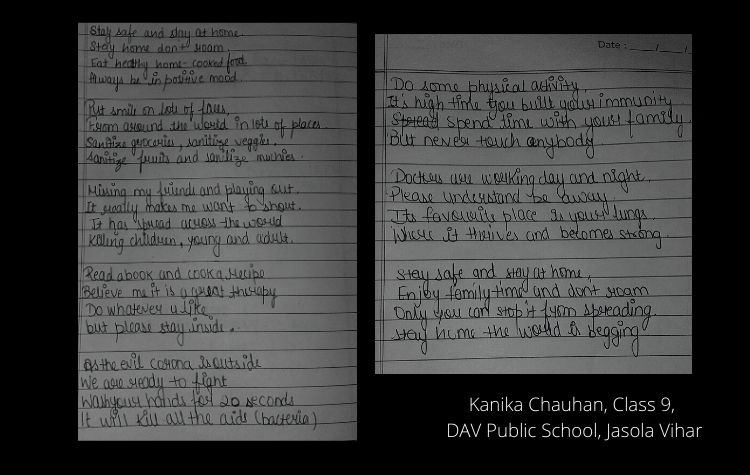 Stay safe and stay at home.
Stay home don't roam.
Eat healthy home-cooked food
Always be in positive mood.
Put smile on lots of faces,
From around the world in lots of places
Sanitize groceries, sanitize veggies.
Sanitize fruits and sanitize
Missing my friends and playing out.
It really makes me want to shout.
It has spread across the world
Killing children, young and adult.
Read a book and cook a recipe
Believe me it is a great therapy
Do whatever u like
but please stay inside.
As the evil corona is outside
We are ready to fight
Wash your hands for 20 seconds
It will kill all the aids (bacteria)
Date : / /
Do some physical activity,
It's high time you built your immunity
Spread spend time with your family
But never touch anybody
Doctors are working day and night,
Please understand be away,
Its favourite place is your lungs
Where it thrives and becomes strong.
Stay safe and stay at home,
Enjoy family-time and dont roam
Only you can stop it from spreading,
Stay home the world is begging
Kanika Chauhan, Class 9,
DAV Public School, Jasola Vihar